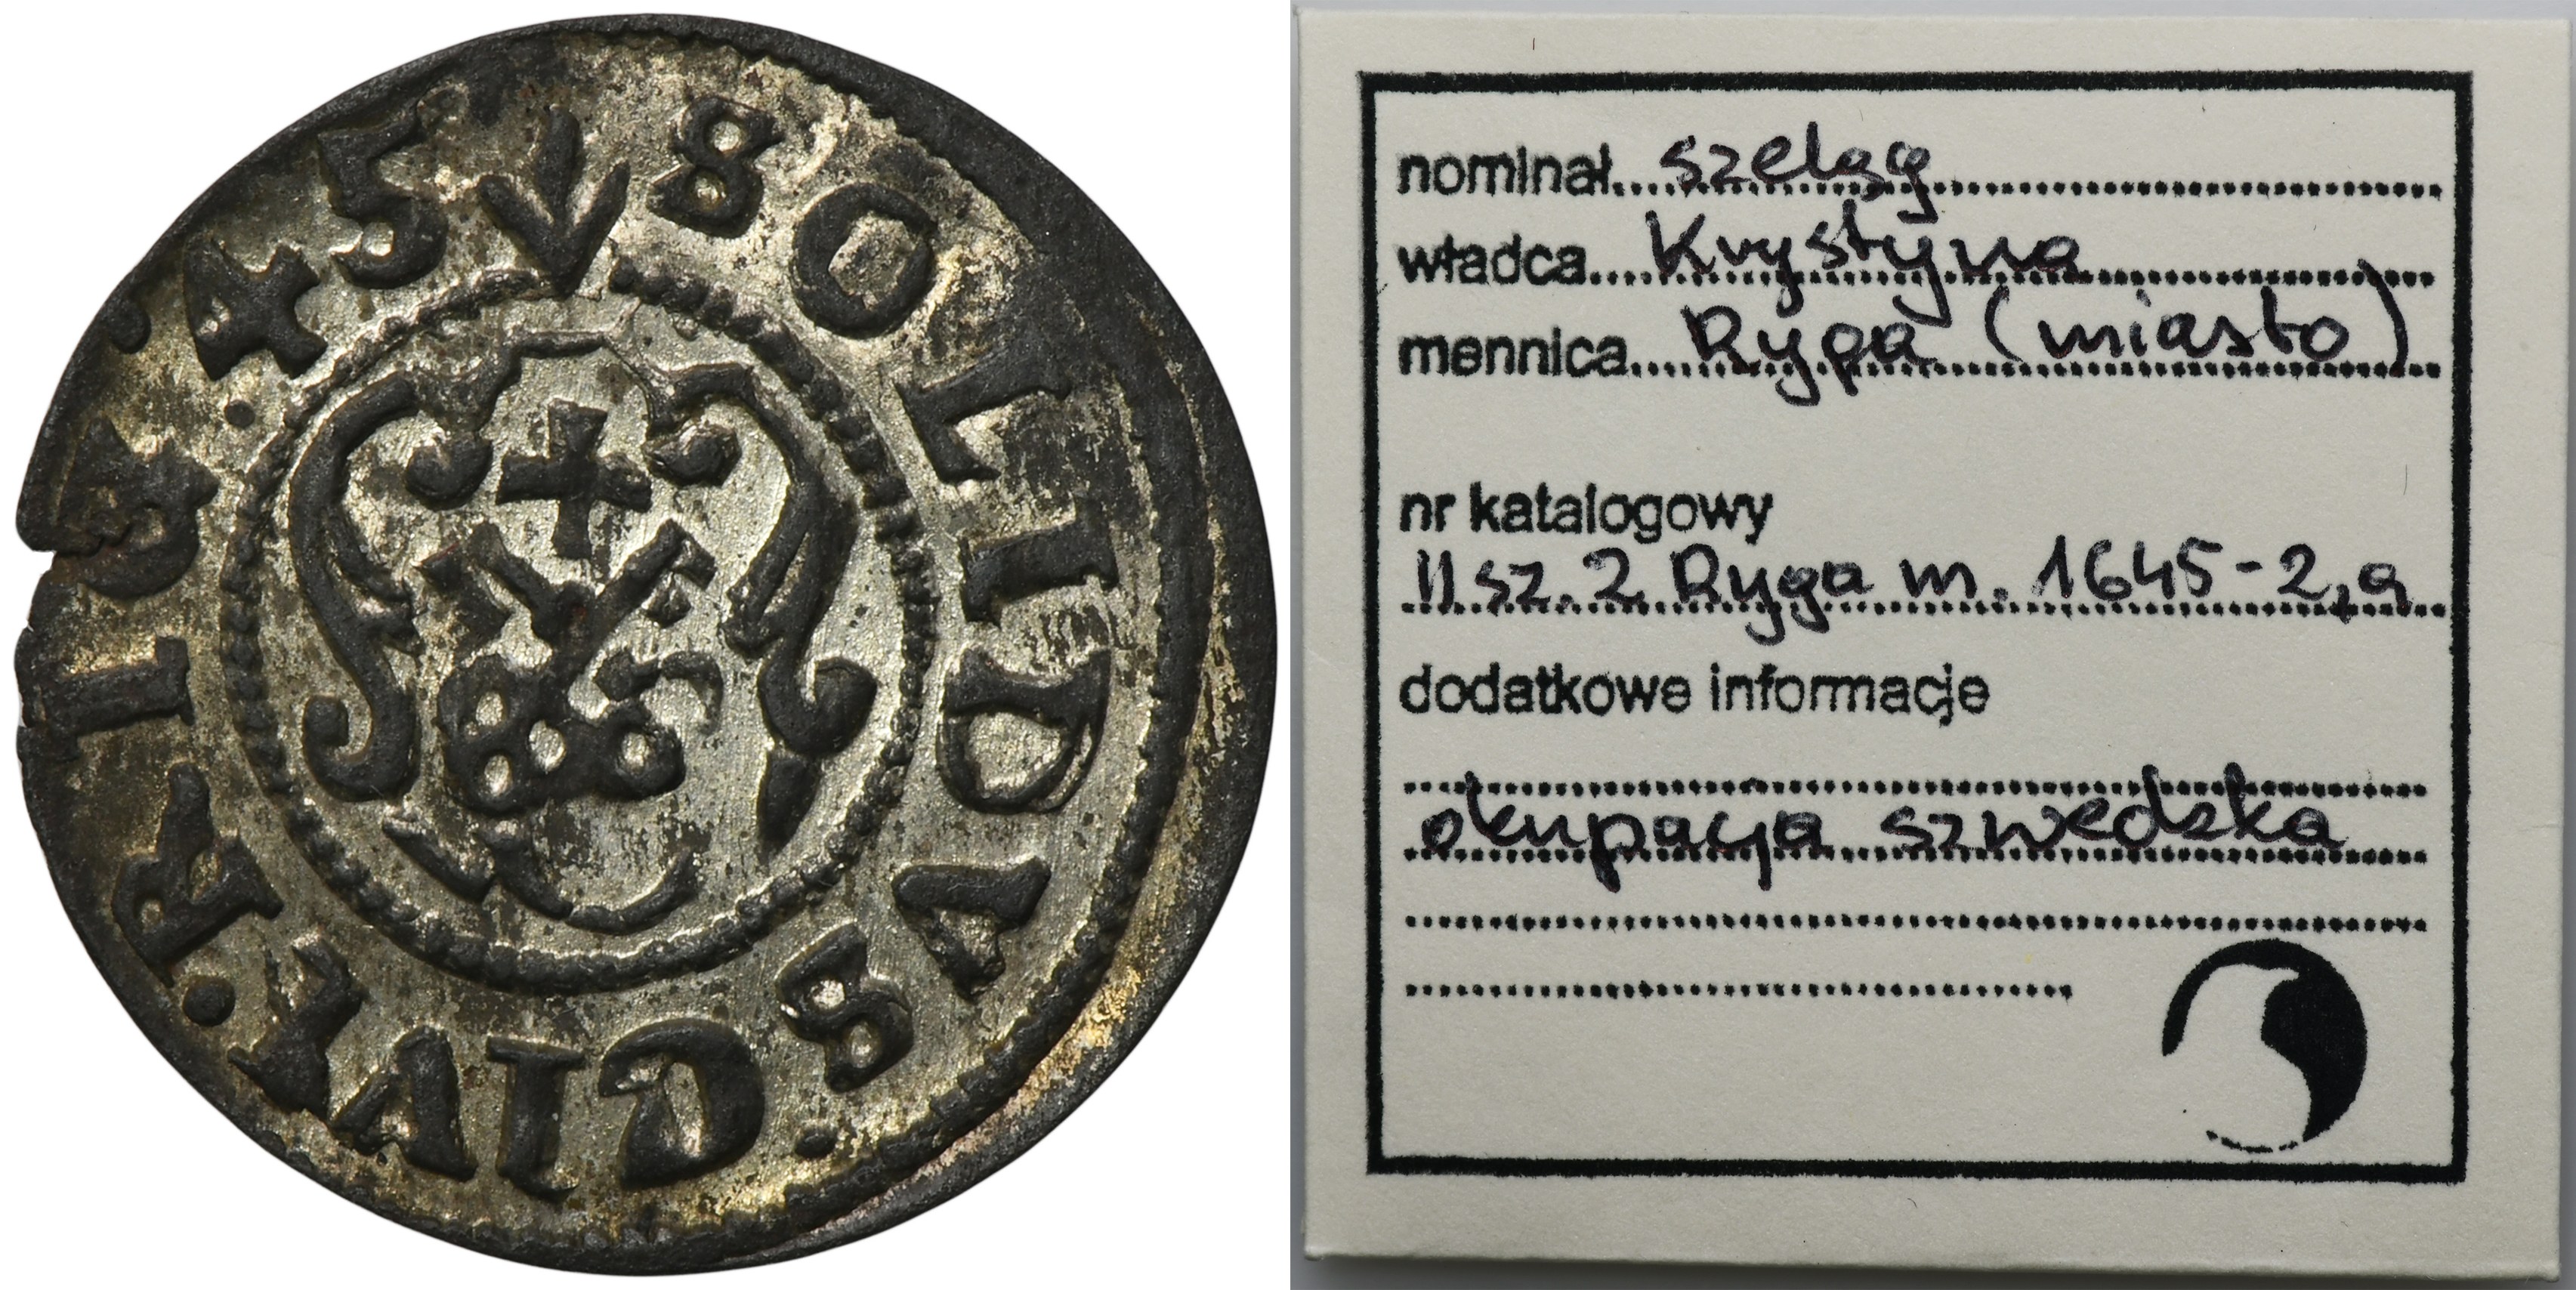 SOLIDVS · CIVIT · RIG · 45
nominał szeląg
władca Krystyna
mennica Ryga (miasto)
nr katalogowy
II sz. 2 Ryga m. 1645-2,a
dodatkowe informacje
okupacja szwedzka